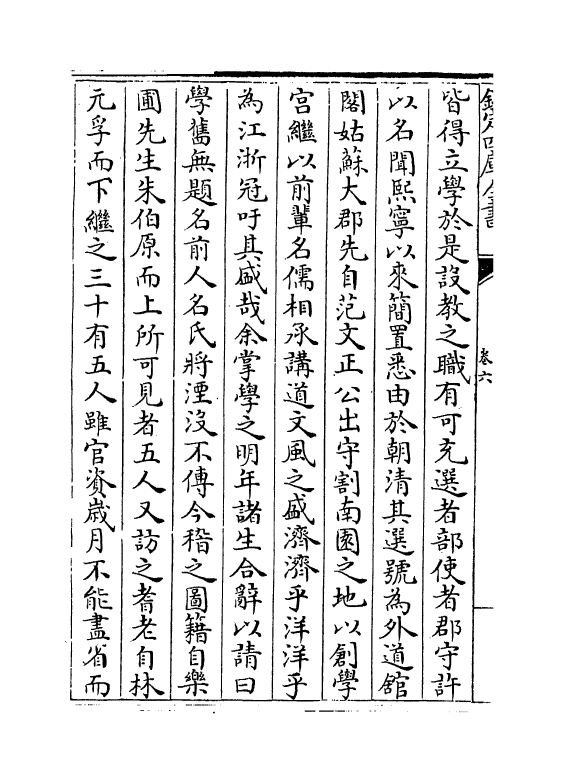 欽定四庫全書
卷六
皆得立學於是設教之職有可充選者部使者郡守許
以名聞熙寧以來簡置悉由於朝清其選號為外道舘
閣姑蘇大郡先自范文正公出守割南園之地以創學
宫繼以前輩名儒相承講道文風之盛濟濟乎洋洋乎
為江浙冠吁其盛哉余掌學之明年諸生合辭以請曰
學舊無題名前人名氏將湮沒不傳今稽之圖籍自樂
圃先生朱伯原而上所可見者五人又訪之耆老自林
元孚而下繼之三十有五人雖官資歳月不能盡省而